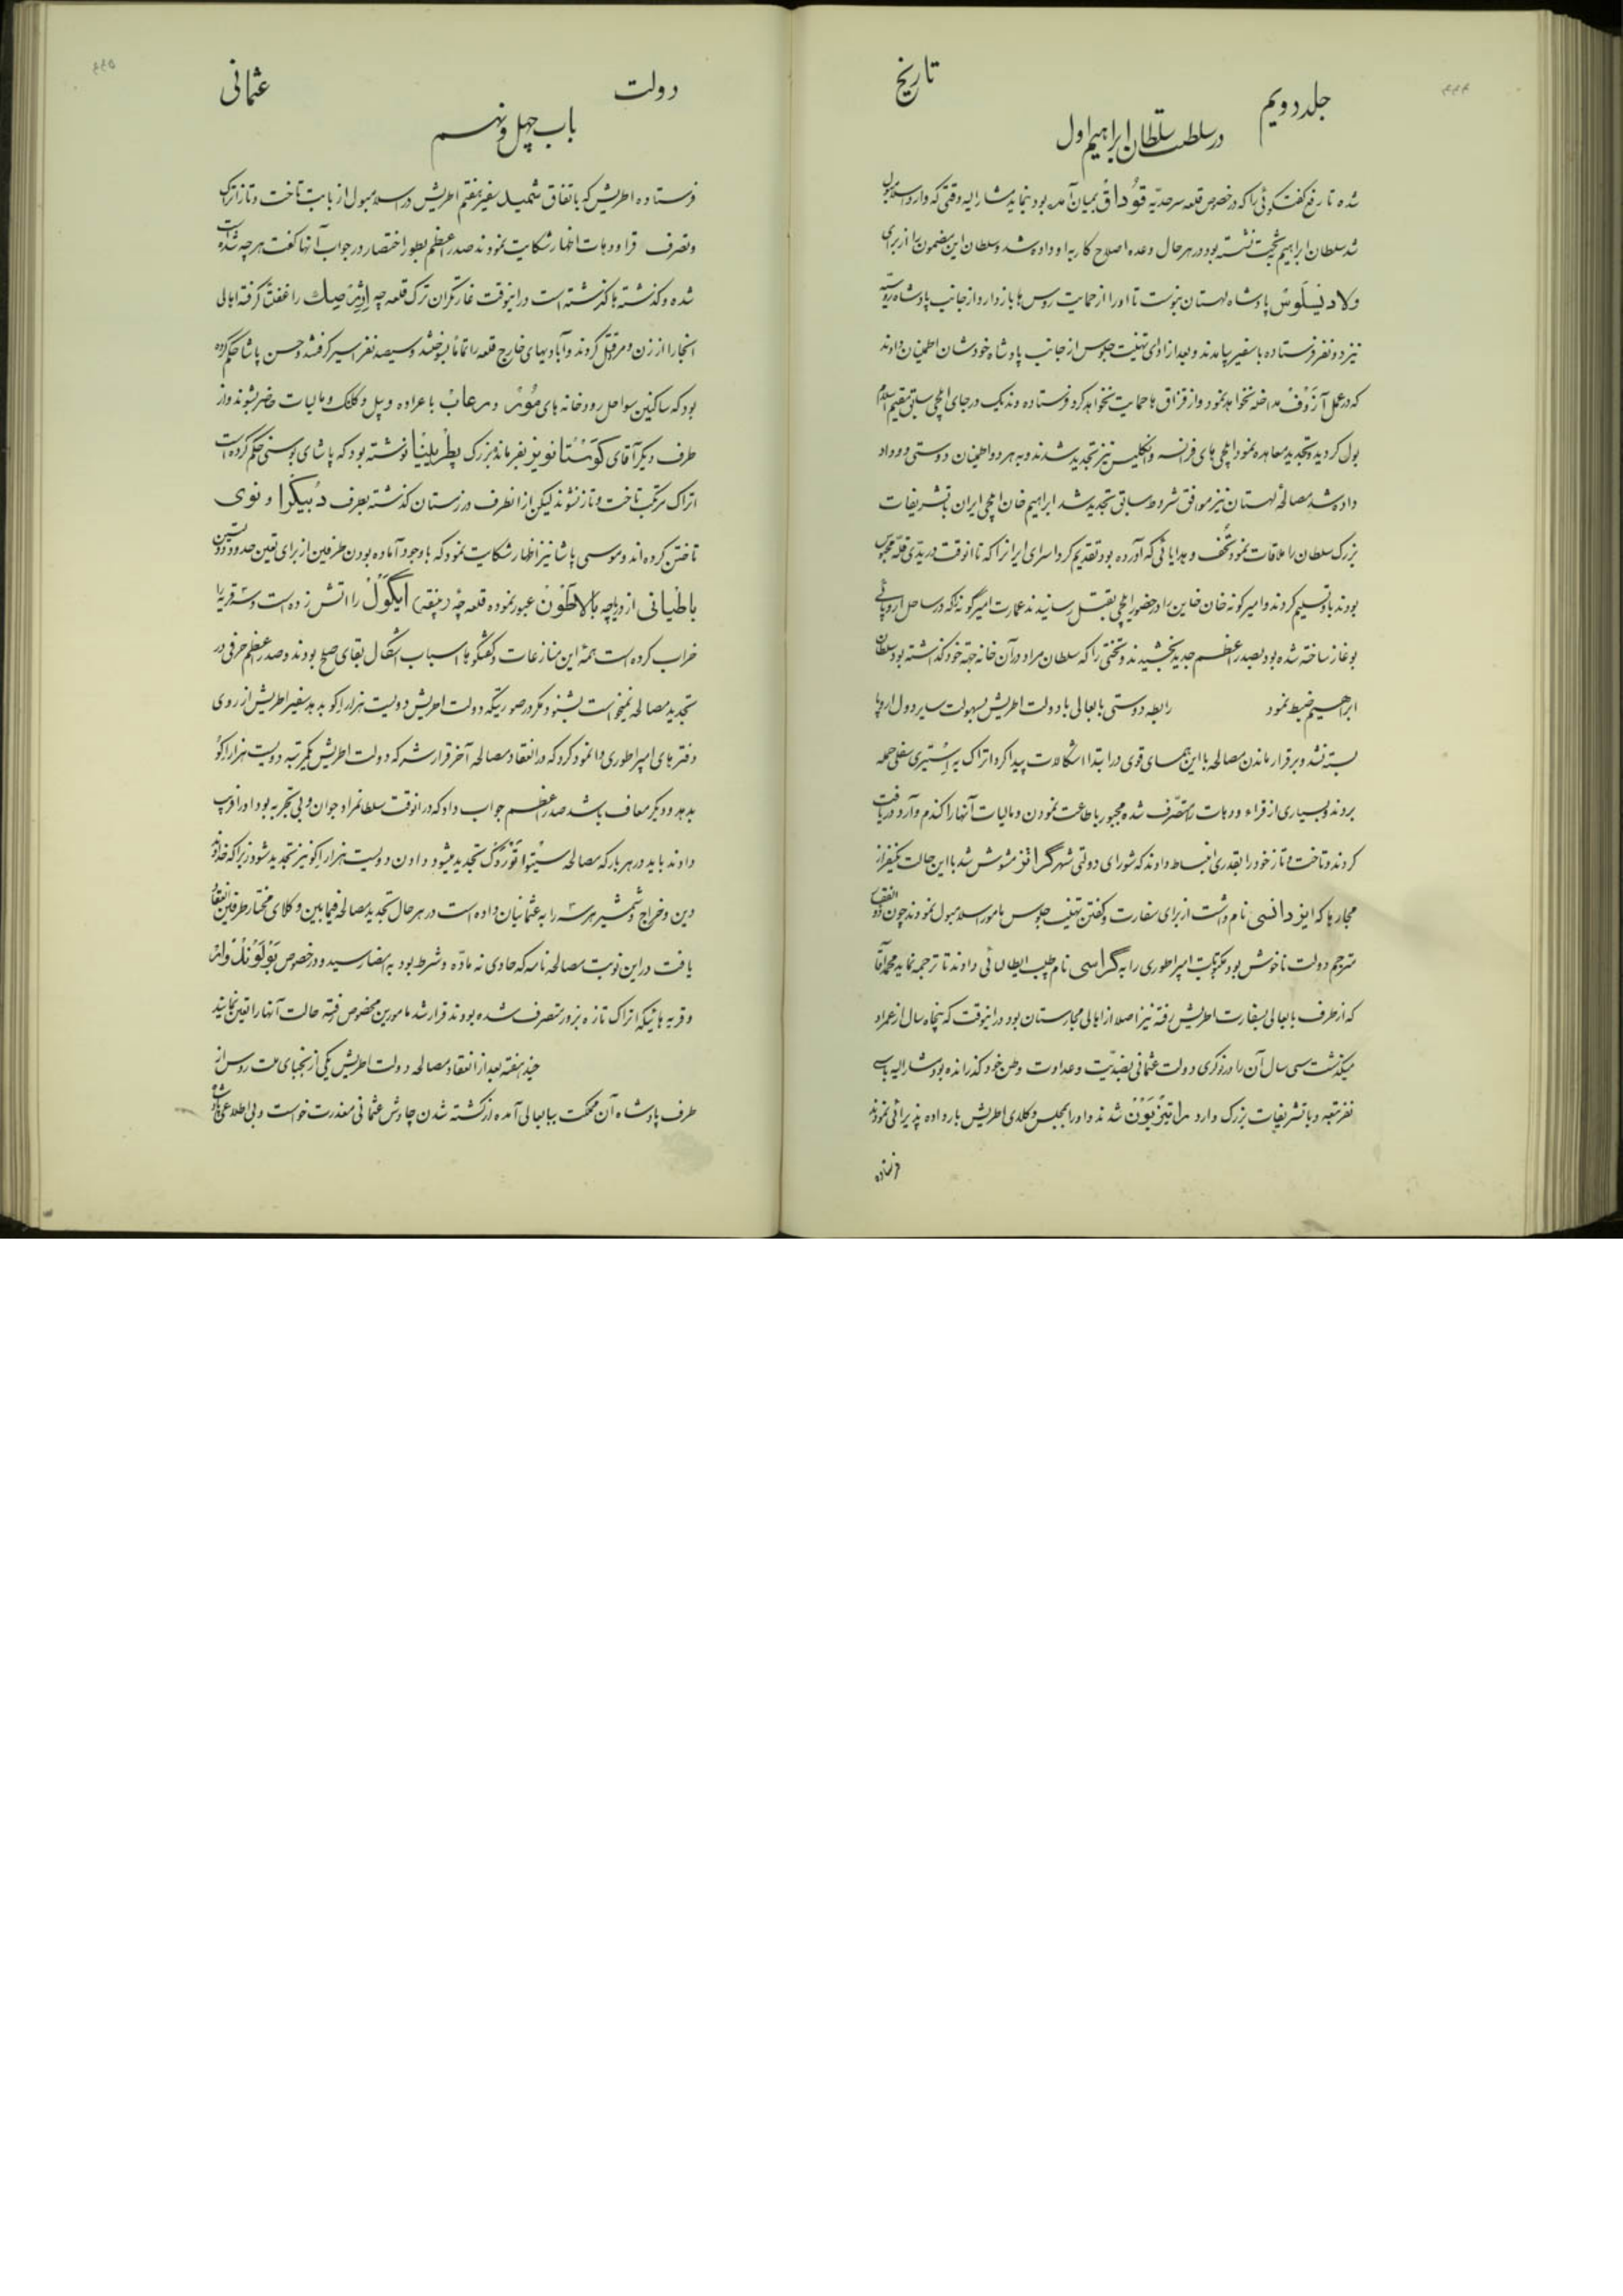 جلد دویم
تاریخ
در سلطنت سلطان ابراهیم اول
شده تا رفع گفتگوئی را که در خصوص قلعه سرحدیه قوُداق بمیان آمده بود بنماید مشارالیه وقتی که وارد اسلامبول
شد سلطان ابراهیم بتخت نشسته بود در هر حال وعده اصلاح کار به او داده شد و سلطان این مضمون را از برای
ولادنیسلَوسْ پادشاه لهستان بنوشت تا او را از حمایت روس ها باز دارد و از جانب پادشاه روسیه
نیز دو نفر فرستاده با سفیر بیامدند و بعد از ادای تهنیت جلوس از جانب پادشاه خودشان اطمینان دادند
که در عمل آزَوْفْ مداخله نخواهد نمود و از قزاق ها حمایت نخواهد کرد فرستاده وندیک در جای ایلچی سابق مقیم اسلام
بول گردید و تجدید معاهده نمود ایلچی های فرانسه و انگلیس نیز تجدید شدند و به هر دو اطمینان دوستی و وداد
داده شد مصالحهٔ لهستان نیز موافق شروط سابق تجدید شد ابراهیم خان ایلچی ایران با تشریفات
بزرگ سلطان را ملاقات نمود و تحف و هدایائی که آورده بود تقدیم کرد اسرای ایرانرا که تا آنوقت در یدّی قلّه محبوس
بودند باو تسلیم کردند و امیر کونه خان خاین را در حضور ایلچی بقتل رسانیدند عمارت امیر کونه را که در ساحل اروپائی
بوغاز ساخته شده بود بصدر اعظم جدید بخشیدند و تختی را که سلطان مراد در آن خانه جهة خود گذاشته بود سلطان
ابراهیم ضبط نمود رابطه دوستی بابعالی با دولت اطریش بسهولت سایر دول اروپا
بسته نشد و برقرار ماندن مصالحه با این همسای قوی در ابتدا اشکالات پیدا کرد اتراک به اِسْتیری سفلی حمله
بردند و بسیاری از قراء و دهات را متصرّف شده مجبور باطاعت نمودن و مالیات آنها را گندم و آرد دریافت
کردند و تاخت و تاز خود را بقدری انبساط دادند که شورای دولتی شهر گراتز مشوش شد با این حالت یکنفر از
مجارها که ایزدانسی نام داشت از برای سفارت و گفتن تهنیت جلوس مامور اسلامبول نمودند چون ذوالفقار
مترجم دولت ناخوش بود مکتوبات امپراطوری را به گراسی نام طبیب ایطالیائی دادند تا ترجمه نماید محمد آقا
که از طرف بابعالی بسفارت اطریش رفته نیز اصلا از اهالی مجارستان بود در اینوقت که پنجاه سال از عمر او
میگذشت سی سال آن را در نوکری دولت عثمانی بضدیّت و عداوت وطن خود گذرانده بود مشارالیه با سی
نفر متبعه و با تشریفات بزرگ وارد شدند و او را بمجلس وکلای اطریش بار داده پذیرائی نمودند
فرستاده
دولت
عثمانی
باب چهل و نهم
فرستاده اطریش که باتفاق شمیل سفیر هفتم اطریش در اسلامبول از بابت تاخت و تاز اتراک
و تصرف قرا و دهات اظهار شکایت نمودند صدر اعظم بطور اختصار در جواب آنها گفت هر چه شده است
شده و گذشته ها گذشته است در اینوقت غارتگران ترک قلعه چه را غفلتاً گرفته اهالی
آنجا را از زن و مرد قتل کردند و آبادیهای خارج قلعه را تماماً بسوختند و سیصد نفر اسیر گرفتند و حسن پاشا حکم کرده
بود که ساکنین سواحل رودخانه های مُوُر و مرعاب با عراده و بیل و کلنک و مالیات حاضر شوند و از
طرف دیگر آقای کوَنسْتانویز بفرمانده بزرگ پطْرینْیا نوشته بود که پاشای بوسنی حکم کرده است
اتراک مرتکب تاخت و تاز نشوند لیکن از انطرف در زستان گذشته بطرف دُبیکرا و نوی
تاختن کرده اند و موسی پاشا نیز اظهار شکایت نمود که با وجود آماده بودن طرفین از برای تعین حدود دو تن
باطیانی از دریاچه بالاطَون عبور نموده قلعه چهٔ ایکَولْ را اتش زده است و سه قریه را
خراب کرده است همهٔ این منازعات و گفتگوها اسباب اشکال بقای صلح بودند و صدر اعظم حرفی در
تجدید مصالحه نمیخواست بشنود مگر در صورتیکه دولت اطریش دویست هزار اِکو بدهد سفیر اطریش از روی
دفترهای امپراطوری وانمود کرد که در انعقاد مصالحه آخر قرار شد که دولت اطریش یکمرتبه دویست هزار اِکوُ
بدهد و دیگر معاف باشد صدر اعظم جواب داد که در آنوقت سلطان مراد جوان و بی تجربه بود او را فریب
دادند باید در هر بار که مصالحه سیْتوا توُروُک تجدید میشود دادن دویست هزار اکو نیز تجدید شود زیرا که خداوند
دین و خراج و شمشیر هر سه را به عثمانیان داده است در هر حال تجدید مصالحه فیمابین وکلای مختار طرفین انعقاد
یافت در این نوبت مصالحه نامه که حاوی نه مادّه و شرط بود به امضا رسید و در خصوص
و قریه هائیکه اتراک تازه بزور متصرف شده بودند قرار شد مامورین مخصوص رفته حالت آنها را تعین نمایند
چند هفته بعد از انعقاد مصالحه دولت اطریش یکی از نجبای ملت روس از
طرف پادشاه آن مملکت ببابعالی آمده از کشته شدن چاوش عثمانی معذرت خواست و بی اطلاعی پادشاه